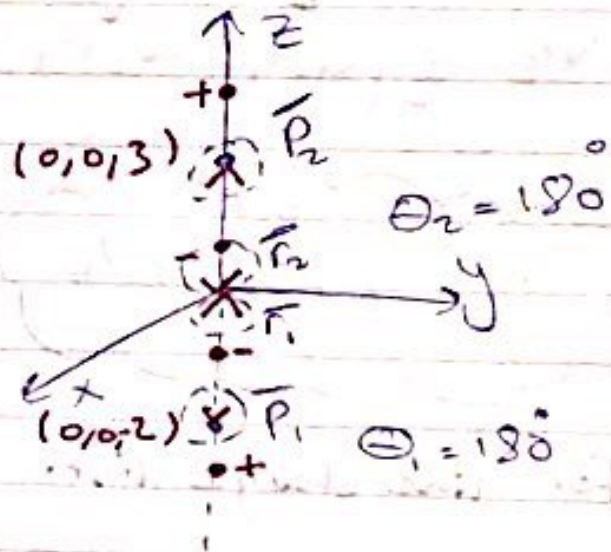 z
+
P̅₂
(0,0,3)
θ₂ = 180°
-
r̅₂
y
r̅₁
-
x
(0,0,-2)
P̅₁
θ₁ = 180°
+